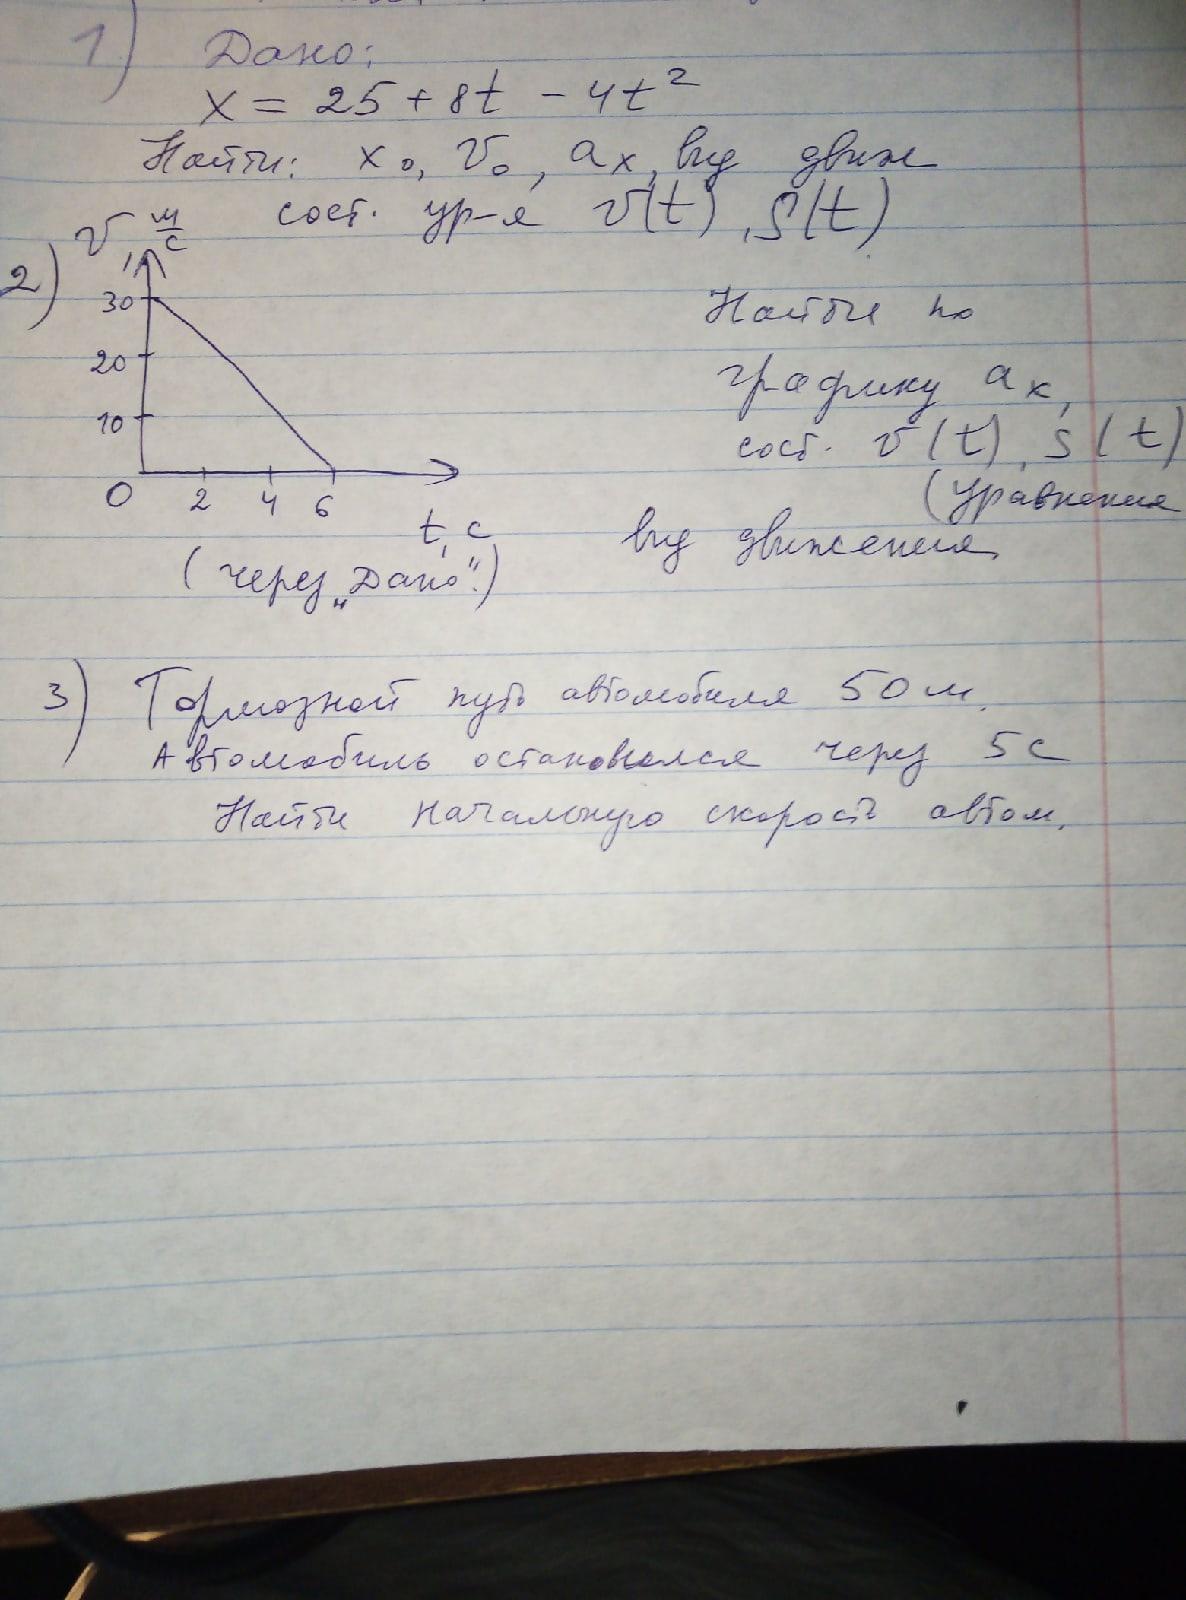 1) Дано:
x = 25 + 8t - 4t²
Найти: x₀, v₀, aₓ, вид движ
сост. ур-я v(t), S(t)
2) v, м/с
30
20
10
0 2 4 6
t, с
(через „Дано“.)
Найти по
графику aₓ,
сост. v(t), s(t)
(уравнения
вид движения
3) Тормозной путь автомобиля 50 м.
Автомобиль остановился через 5с
Найти начальную скорость автом.